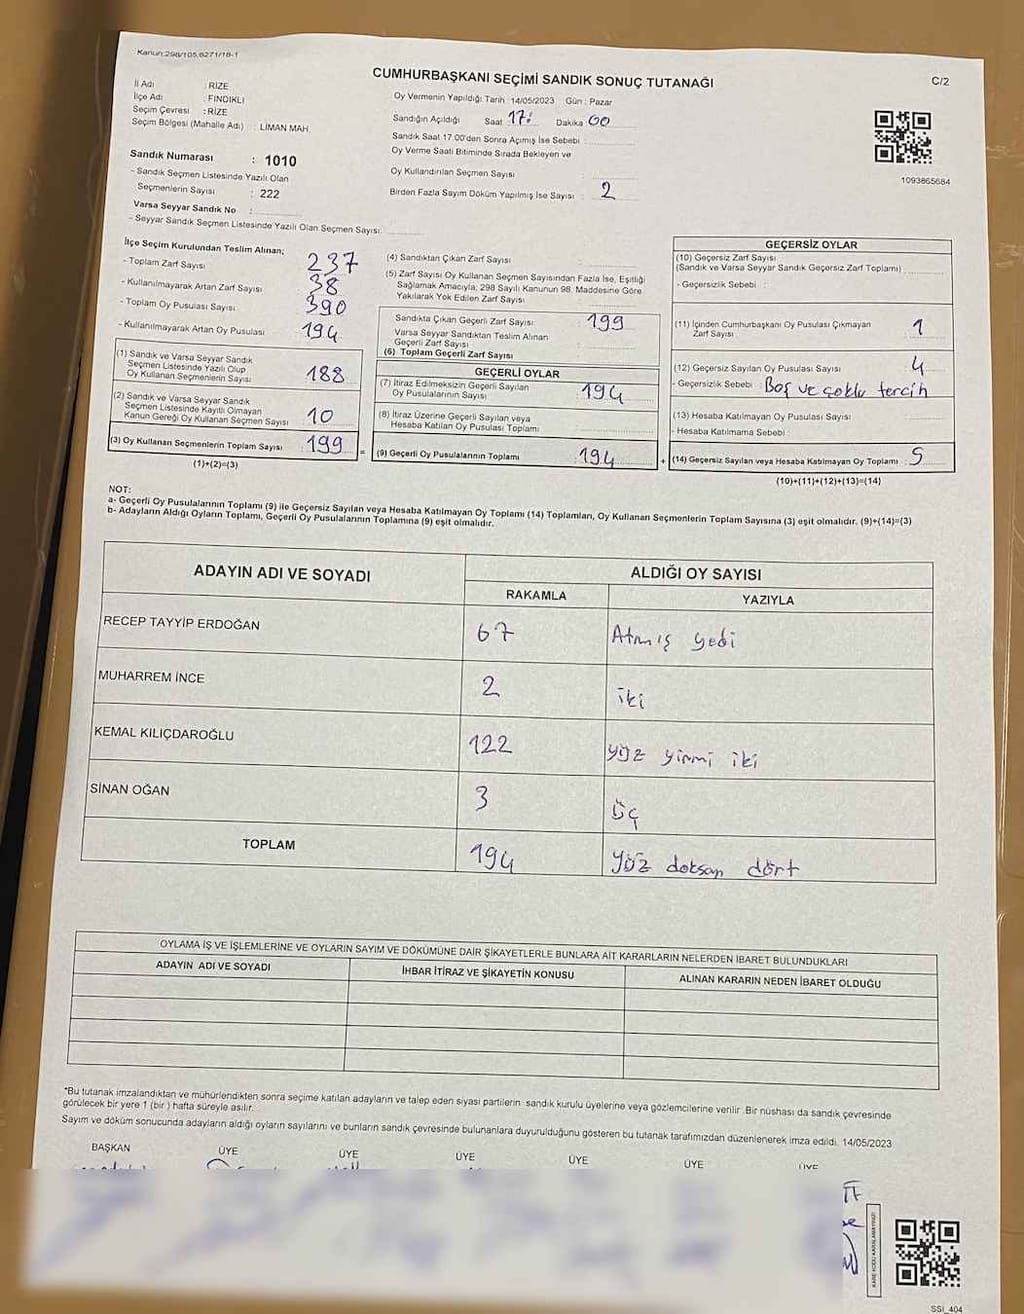 Kanun:298/105,6271/18-1
CUMHURBAŞKANI SEÇİMİ SANDIK SONUÇ TUTANAĞI
C/2
İl Adı : RİZE
İlçe Adı : FINDIKLI
Seçim Çevresi : RİZE
Seçim Bölgesi (Mahalle Adı) : LİMAN MAH.
Oy Vermenin Yapıldığı Tarih : 14/05/2023 Gün : Pazar
Sandığın Açıldığı Saat 17: Dakika 00
Sandık Saat 17.00'den Sonra Açımış İse Sebebi :
Oy Verme Saati Bitiminde Sırada Bekleyen ve
Oy Kullandırılan Seçmen Sayısı :
Birden Fazla Sayım Döküm Yapılmış İse Sayısı : 2
1093865684
Sandık Numarası : 1010
- Sandık Seçmen Listesinde Yazılı Olan
Seçmenlerin Sayısı : 222
Varsa Seyyar Sandık No :
- Seyyar Sandık Seçmen Listesinde Yazılı Olan Seçmen Sayısı:
İlçe Seçim Kurulundan Teslim Alınan;
- Toplam Zarf Sayısı 237
- Kullanılmayarak Artan Zarf Sayısı 38
- Toplam Oy Pusulası Sayısı 390
- Kullanılmayarak Artan Oy Pusulası 194
(1) Sandık ve Varsa Seyyar Sandık
Seçmen Listesinde Yazılı Olup
Oy Kullanan Seçmenlerin Sayısı 188
(2) Sandık ve Varsa Seyyar Sandık
Seçmen Listesinde Kayıtlı Olmayan
Kanun Gereği Oy Kullanan Seçmen Sayısı 10
(3) Oy Kullanan Seçmenlerin Toplam Sayısı : 199
(1)+(2)=(3)
(4) Sandıktan Çıkan Zarf Sayısı :
(5) Zarf Sayısı Oy Kullanan Seçmen Sayısından Fazla İse, Eşitliği
Sağlamak Amacıyla; 298 Sayılı Kanunun 98. Maddesine Göre
Yakılarak Yok Edilen Zarf Sayısı :
Sandıkta Çıkan Geçerli Zarf Sayısı : 199
Varsa Seyyar Sandıktan Teslim Alınan
Geçerli Zarf Sayısı :
(6) Toplam Geçerli Zarf Sayısı
GEÇERLİ OYLAR
(7) İtiraz Edilmeksizin Geçerli Sayılan
Oy Pusulalarının Sayısı : 194
(8) İtiraz Üzerine Geçerli Sayılan veya
Hesaba Katılan Oy Pusulası Toplamı :
= (9) Geçerli Oy Pusulalarının Toplamı : 194
GEÇERSİZ OYLAR
(10) Geçersiz Zarf Sayısı
(Sandık ve Varsa Seyyar Sandık Geçersiz Zarf Toplamı) :
- Geçersizlik Sebebi :
(11) İçinden Cumhurbaşkanı Oy Pusulası Çıkmayan
Zarf Sayısı : 1
(12) Geçersiz Sayılan Oy Pusulası Sayısı : 4
- Geçersizlik Sebebi : Boş ve çoklu tercih
(13) Hesaba Katılmayan Oy Pusulası Sayısı :
- Hesaba Katılmama Sebebi :
+ (14) Geçersiz Sayılan veya Hesaba Katılmayan Oy Toplamı : 5
(10)+(11)+(12)+(13)=(14)
NOT:
a- Geçerli Oy Pusulalarının Toplamı (9) ile Geçersiz Sayılan veya Hesaba Katılmayan Oy Toplamı (14) Toplamları, Oy Kullanan Seçmenlerin Toplam Sayısına (3) eşit olmalıdır. (9)+(14)=(3)
b- Adayların Aldığı Oyların Toplamı, Geçerli Oy Pusulalarının Toplamına (9) eşit olmalıdır.
ADAYIN ADI VE SOYADI
ALDIĞI OY SAYISI
RAKAMLA
YAZIYLA
RECEP TAYYİP ERDOĞAN 67 Atmış yedi
MUHARREM İNCE 2 iki
KEMAL KILIÇDAROĞLU 122 yüz yirmi iki
SİNAN OĞAN 3 üç
TOPLAM 194 yüz doksan dört
OYLAMA İŞ VE İŞLEMLERİNE VE OYLARIN SAYIM VE DÖKÜMÜNE DAİR ŞİKAYETLERLE BUNLARA AİT KARARLARIN NELERDEN İBARET BULUNDUKLARI
ADAYIN ADI VE SOYADI
İHBAR İTİRAZ VE ŞİKAYETİN KONUSU
ALINAN KARARIN NEDEN İBARET OLDUĞU
*Bu tutanak imzalandıktan ve mühürlendikten sonra seçime katılan adayların ve talep eden siyasi partilerin sandık kurulu üyelerine veya gözlemcilerine verilir. Bir nüshası da sandık çevresinde
görülecek bir yere 1 (bir ) hafta süreyle asılır.
Sayım ve döküm sonucunda adayların aldığı oyların sayılarını ve bunların sandık çevresinde bulunanlara duyurulduğunu gösteren bu tutanak tarafımızdan düzenlenerek imza edildi. 14/05/2023
BAŞKAN ÜYE ÜYE ÜYE ÜYE ÜYE ÜYE
KARE KODU KARALAMAYINIZ!
SSI_404